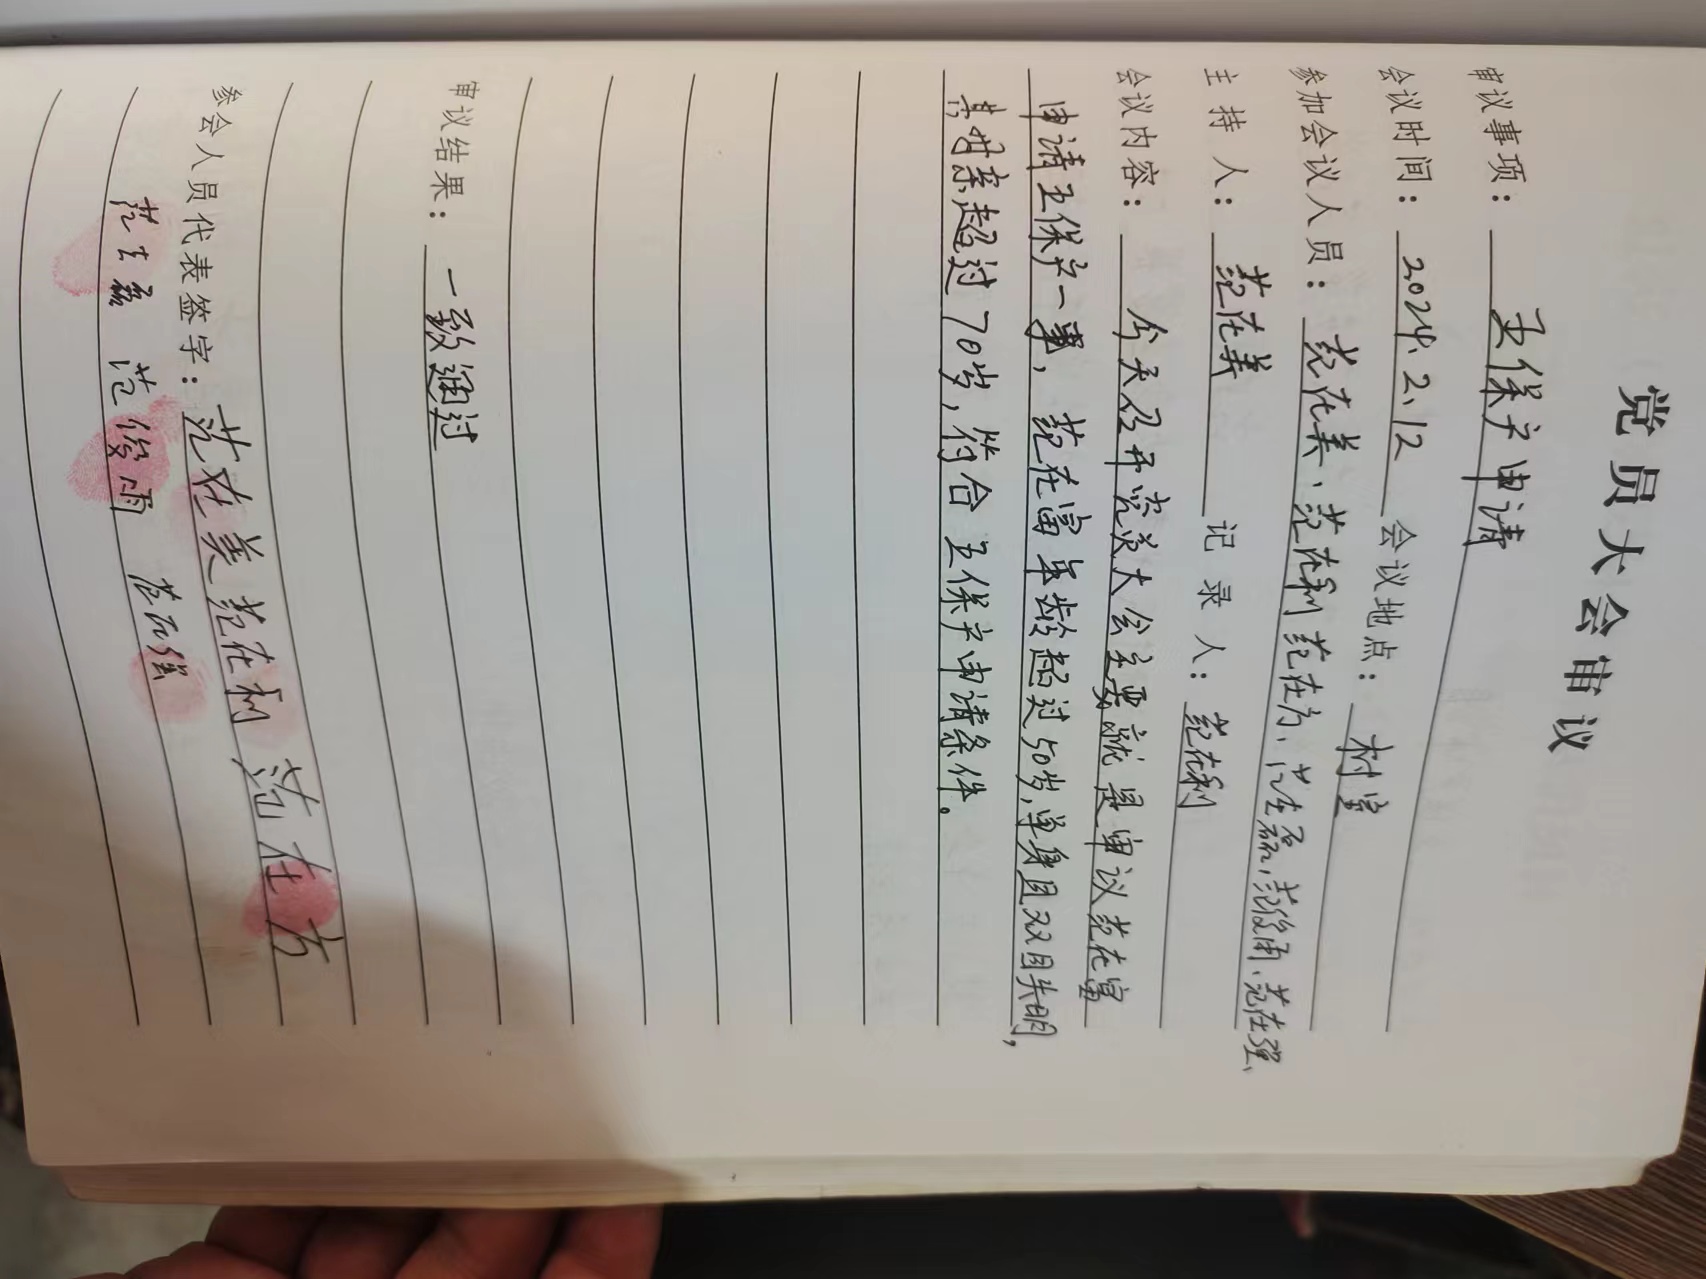 党员大会审议
审议事项： 五保户申请
会议时间： 2024.2.12 会议地点： 村室
参加会议人员： 范在美、范在利 范在方、范士磊、范俊雨、范在强、
主持人： 范在美 记录人： 范在利
会议内容： 今天召开党员大会主要就是审议范在富
申请五保户一事，范在富年龄超过50岁，单身且双目失明，
其母亲超过70岁，符合五保户申请条件。
审议结果： 一致通过
参会人员代表签字： 范在美 范在利 范在方
范士磊 范俊雨 范在强